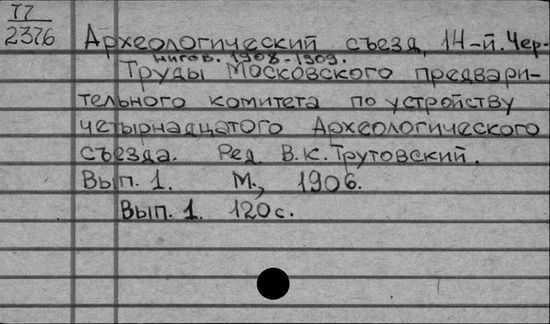 77
2376
Археологический съезд, 14-й. Чер-
нигов. 1908-1909.
Труды Московского предвари-
тельного комитета по устройству
четырнадцатого Археологического
съезда. Ред В.К. Трутовский.
Вып. 1. М., 1906.
Вып. 1. 120с.